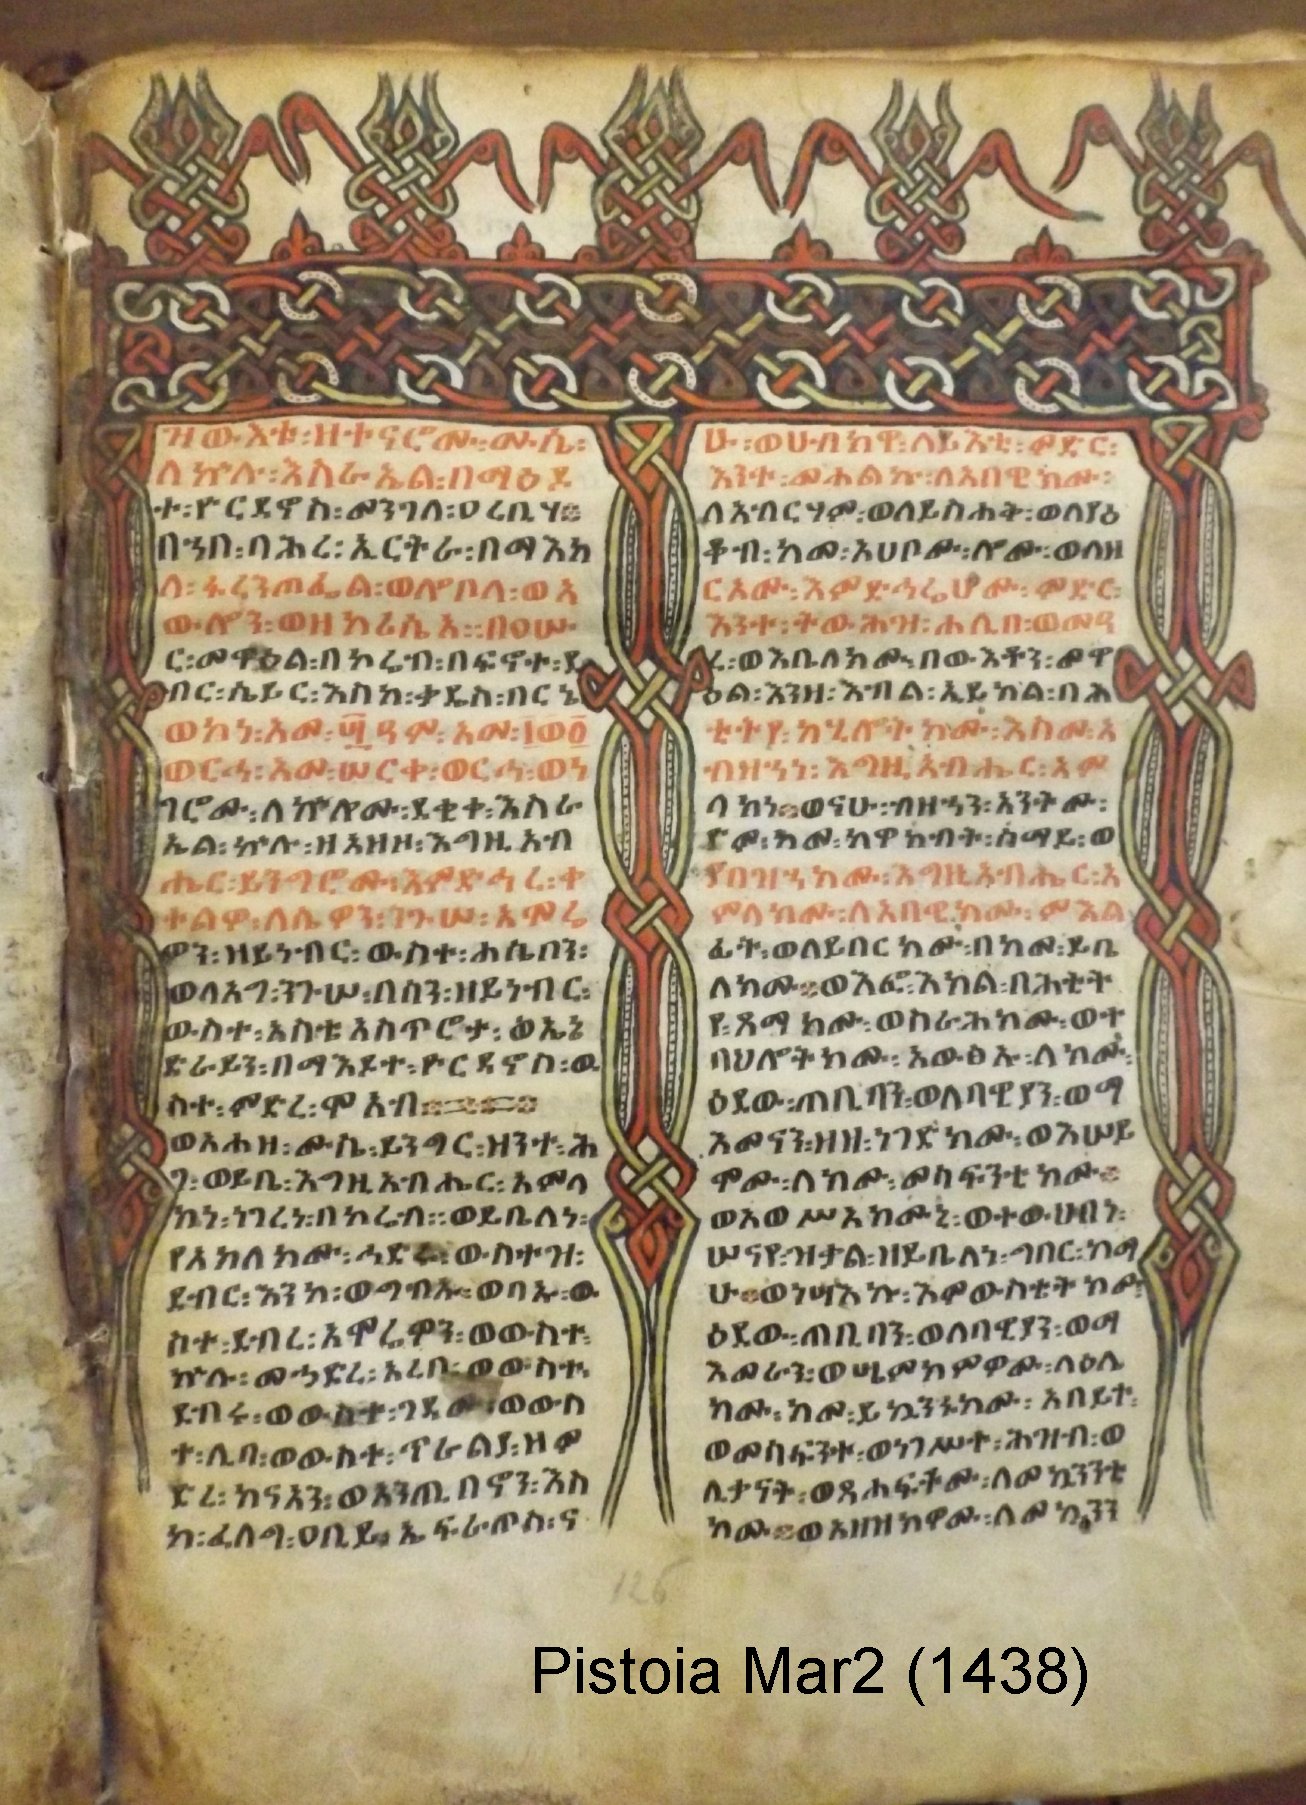 ዝውእቱ፡ዘተናገሮሙ፡ሙሴ፡
ለኵሉ፡እስራኤል፡በማዕዶ
ተ፡ዮርዳኖስ፡መንገለ፡ዐረቢሃ።
በኀበ፡ባሕረ፡ኤርትራ፡በማእከ
ለ፡ፋረን
ር፡መዋዕል፡በኮሬብ፡በፍኖተ፡ደ
ብር፡ሴይር፡እስከ፡ቃዴስ፡በርኔ
ወኮነ፡አመ፡፵ዓም፡አመ፡፲ወ፩
ወርኅ፡አመ፡ሠርቀ፡ወርኅ፡ወነ
ገሮሙ፡ለኵሎሙ፡ደቂቀ፡እስራ
ኤል፡ኵሉ፡ዘአዘዞ፡እግዚአብ
ሔር፡ይንግሮሙ፡እምድኅረ፡ቀ
ተልዎ፡ለሴዎን፡ንጉሠ፡አሞሬ
ዎን፡ዘይነብር፡ውስተ፡ሐሴቦን፡
ወለአግ፡ንጉሠ፡በሳን፡ዘይነብር፡
ውስተ፡አስቴ
ድራይን፡በማእዶተ፡ዮርዳኖስ፡ው
ስተ፡ምድረ፡ሞአብ።
ወአሐዘ፡ሙሴ፡ይንግር፡ዝንተ፡ሕ
ገ፡ወይቤ፡እግዚአብሔር፡አምላ
ክነ፡ነገረነ፡በኮሬብ፡፡ወይቤለነ፡
የአክለክሙ፡ኀድረ፡ውስተዝ፡
ደብር፡እንከ፡ወግብኡ፡ወባኡ፡ው
ስተ፡ደብረ፡አሞሬዎን፡ወውስተ፡
ኵሉ፡መኅደረ፡አረባ፡ወውስተ፡
ደብሩ፡ወውስተ፡ገዳሙ፡ወውስ
ተ፡ሊባ፡ወውስተ፡ጥራልያ፡ዘም
ድረ፡ከናአን፡ወአንጢበኖን፡እስ
ከ፡ፈለግ፡ዐቢይ፡ኤፍራጦስ፡ና
ሁ፡ወሀብክዋ፡ለይእቲ፡ምድር፡
እንተ፡መሐልኩ፡ለአበዊክሙ፡
ለአብርሃም፡ወለይስሐቅ፡ወለያዕ
ቆብ፡ከመ፡አሀቦሙ፡ሎሙ፡ወለዘ
ርአሙ፡እምድኅሬሆሙ፡ምድር፡
እንተ፡ትውሕዝ፡ሐሊበ፡ወመዓ
ረ፡ወእቤለክሙ፡በውእቶን፡መዋ
ዕል፡እንዘ፡እብል፡ኢይክል፡በሕ
ቲትየ፡ከሂሎት፡ክሙ፡እስመ፡አ
ብዝኀነ፡እግዚአብሔር፡አም
ላክነ።ወናሁ፡ብዙኃን፡አንትሙ፡
ዮም፡ከመ፡ከዋክብት፡ሰማይ፡ወ
ያበዝኅክሙ፡እግዚአብሔር፡አ
ምላክሙ፡ለአበዊክሙ፡ምእል
ፊት፡ወለይበርክሙ፡በከመ፡ይቤ
ለክሙ።ወእፎ፡እክል፡በሕቲት
የ፡ጻማክሙ፡ወስራሕክሙ፡ወተ
ባህሎትክሙ፡አውፅኡ፡ለክሙ፡
ዕደው፡ጠቢባን፡ወለባዊያን፡ወማ
እመናን፡ዘዘ፡ነገድክሙ፡ወእሠይ
ሞሙ፡ለክሙ፡መሳፍንቲክሙ።
ወአወሥአክሙኒ፡ወተውህበነ፡
ሠናየ፡ዝቃል፡ዘይቤለነ፡ግበር፡ከማ
ሁ።ወነሣእኩ፡እምውስቴትክሙ፡
ዕደው፡ጠቢባን፡ወለባዊያን፡ወማ
እመራን፡ወሜምክምዎሙ፡ለዕሌ
ክሙ፡ከመ፡ይኰንኑክሙ፡አበይተ፡
ወመሳፍንተ፡ወነገሥተ፡ሕዝብ፡ወ
ሊቃናት፡ወጸሐፍትሙ፡ለመኳንንቲ
ክሙ።ወአዘዝክዎሙ፡ለመኳንን
126
Pistoia Mar2 (1438)